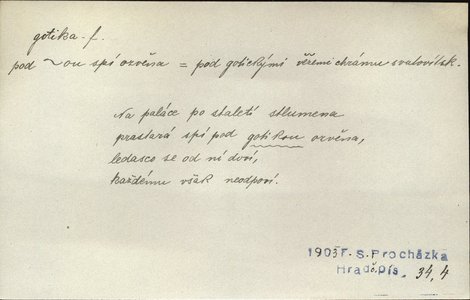 gotika f.
pod ~ou spí ozvěna = pod gotickými věžemi chrámu svatovítsk.
Na paláce po staletí stlumena
prastará spí pod gotikou ozvěna,
ledasco se od ní dví,
každému však neodpoví.
1903 F. S. Procházka
Hradč. Pís. 34, 4